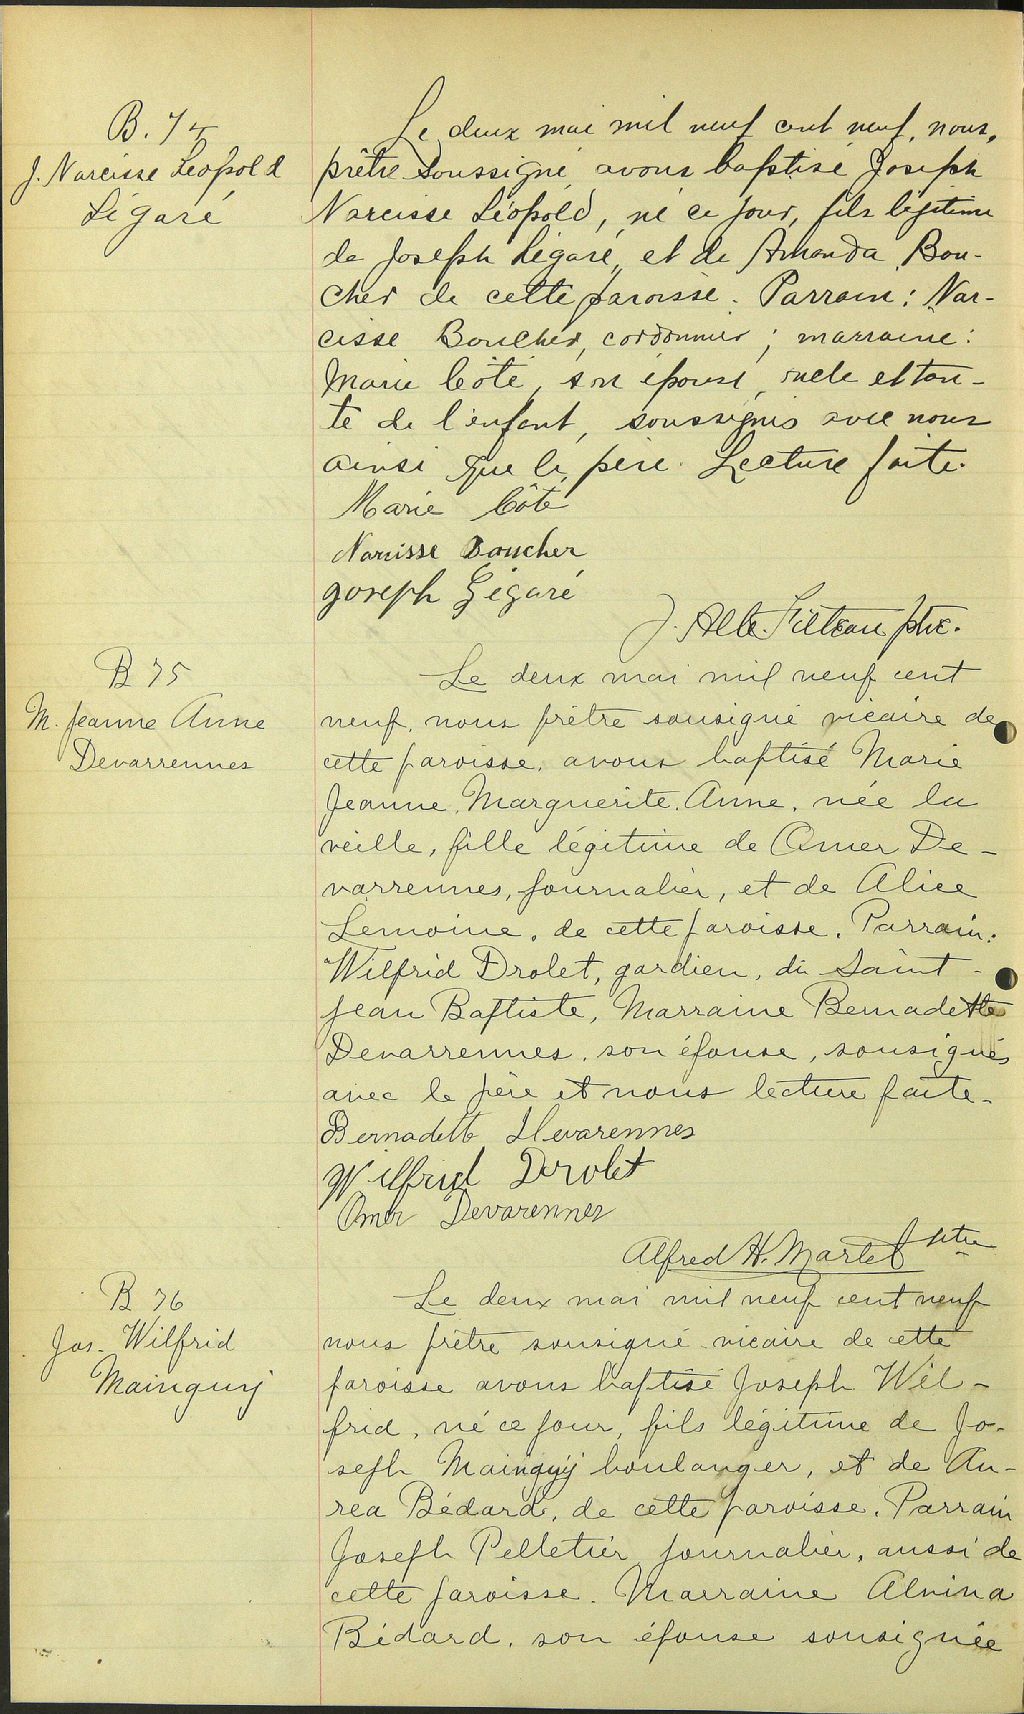 B. 74
J. Narcisse Léopold
Légaré
Le deux mai mil neuf cent neuf, nous,
prêtre soussigné, avons baptisé Joseph
Narcisse Léopold, né ce jour, fils légitime
de Joseph Légaré, et de Amanda Bou-
cher de cette paroisse. Parrain: Nar-
cisse Boucher, cordonnier; marraine:
Marie Côté, son épouse, oncle et tan-
te de l'enfant, soussignés avec nous
ainsi que le père. Lecture faite.
Marie Côté
Narcisse Boucher
Joseph Légaré
J. Alb. Filteau ptre.
B 75
M. Jeanne Anne
Devarrennes
Le deux mai mil neuf cent
neuf, nous prêtre sousigné vicaire de
cette paroisse, avons baptisé Marie
Jeanne, Marguerite, Anne, née la
veille, fille légitime de Omer De-
varrennes, journalier, et de Alice
Lemoine, de cette paroisse. Parrain:
Wilfrid Drolet, gardien, de Saint-
Jean Baptiste, Marraine Bernadette
Devarrennes, son épouse, sousignés
avec le père et nous lecture faite.
Bernadette Devarennes
Wilfrid Drolet
Omer Devarennes
Alfred H. Martel ptre
B 76
Jos. Wilfrid
Mainguy
Le deux mai mil neuf cent neuf
nous prêtre sousigné vicaire de cette
paroisse avons baptisé Joseph Wil-
frid, né ce jour, fils légitime de Jo-
seph Mainguy boulanger, et de Au-
rea Bédard, de cette paroisse. Parrain
Joseph Pelletier journalier, aussi de
cette paroisse. Marraine Alvina
Bédard, son épouse sousignée